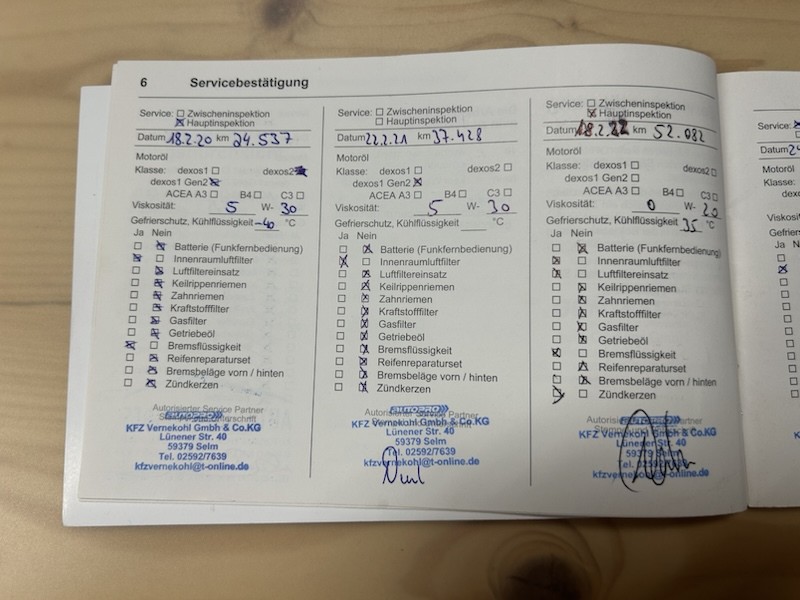 6 Servicebestätigung
Service: ☐ Zwischeninspektion
☒ Hauptinspektion
Datum 18.2.20 km 24.537
Motoröl
Klasse: dexos1 ☐ dexos2
dexos1 Gen2 ☒
ACEA A3 ☐ B4 ☐ C3 ☐
Viskosität: 5 W- 30
Gefrierschutz, Kühlflüssigkeit -40 °C
Ja Nein
☐ ☒ Batterie (Funkfernbedienung)
☒ ☐ Innenraumluftfilter
☐ ☒ Luftfiltereinsatz
☐ ☒ Keilrippenriemen
☐ ☒ Zahnriemen
☐ ☒ Kraftstofffilter
☐ ☒ Gasfilter
☐ ☒ Getriebeöl
☒ ☐ Bremsflüssigkeit
☐ ☒ Reifenreparaturset
☐ ☒ Bremsbeläge vorn / hinten
☐ ☒ Zündkerzen
Autorisierter Service Partner
AUTOPRO
KFZ Vernekohl Gmbh & Co.KG
Lünener Str. 40
59379 Selm
Tel. 02592/7639
kfzvernekohl@t-online.de
Service: ☐ Zwischeninspektion
☐ Hauptinspektion
Datum 22.2.21 km 37.428
Motoröl
Klasse: dexos1 ☐ dexos2 ☐
dexos1 Gen2 ☒
ACEA A3 ☐ B4 ☐ C3 ☐
Viskosität: 5 W- 30
Gefrierschutz, Kühlflüssigkeit °C
Ja Nein
☐ ☒ Batterie (Funkfernbedienung)
☒ ☐ Innenraumluftfilter
☐ ☒ Luftfiltereinsatz
☐ ☒ Keilrippenriemen
☐ ☒ Zahnriemen
☐ ☒ Kraftstofffilter
☐ ☒ Gasfilter
☐ ☒ Getriebeöl
☐ ☒ Bremsflüssigkeit
☐ ☒ Reifenreparaturset
☐ ☒ Bremsbeläge vorn / hinten
☐ ☒ Zündkerzen
Autorisierter Service Partner
AUTOPRO
KFZ Vernekohl Gmbh & Co.KG
Lünener Str. 40
59379 Selm
Tel. 02592/7639
kfzvernekohl@t-online.de
Service: ☐ Zwischeninspektion
☒ Hauptinspektion
Datum 18.2.22 km 52.082
Motoröl
Klasse: dexos1 ☐ dexos2 ☐
dexos1 Gen2 ☐
ACEA A3 ☐ B4 ☐ C3 ☐
Viskosität: 0 W- 20
Gefrierschutz, Kühlflüssigkeit 35 °C
Ja Nein
☐ ☒ Batterie (Funkfernbedienung)
☒ ☐ Innenraumluftfilter
☒ ☐ Luftfiltereinsatz
☐ ☒ Keilrippenriemen
☐ ☒ Zahnriemen
☐ ☒ Kraftstofffilter
☐ ☒ Gasfilter
☐ ☒ Getriebeöl
☒ ☐ Bremsflüssigkeit
☐ ☒ Reifenreparaturset
☐ ☒ Bremsbeläge vorn / hinten
☒ ☐ Zündkerzen
KFZ Vernekohl Gmbh & Co.KG
Lünener Str. 40
59379
Tel.
kfzvernekohl@t-online.de
Service:
Datum
Motoröl
Klasse:
Ja